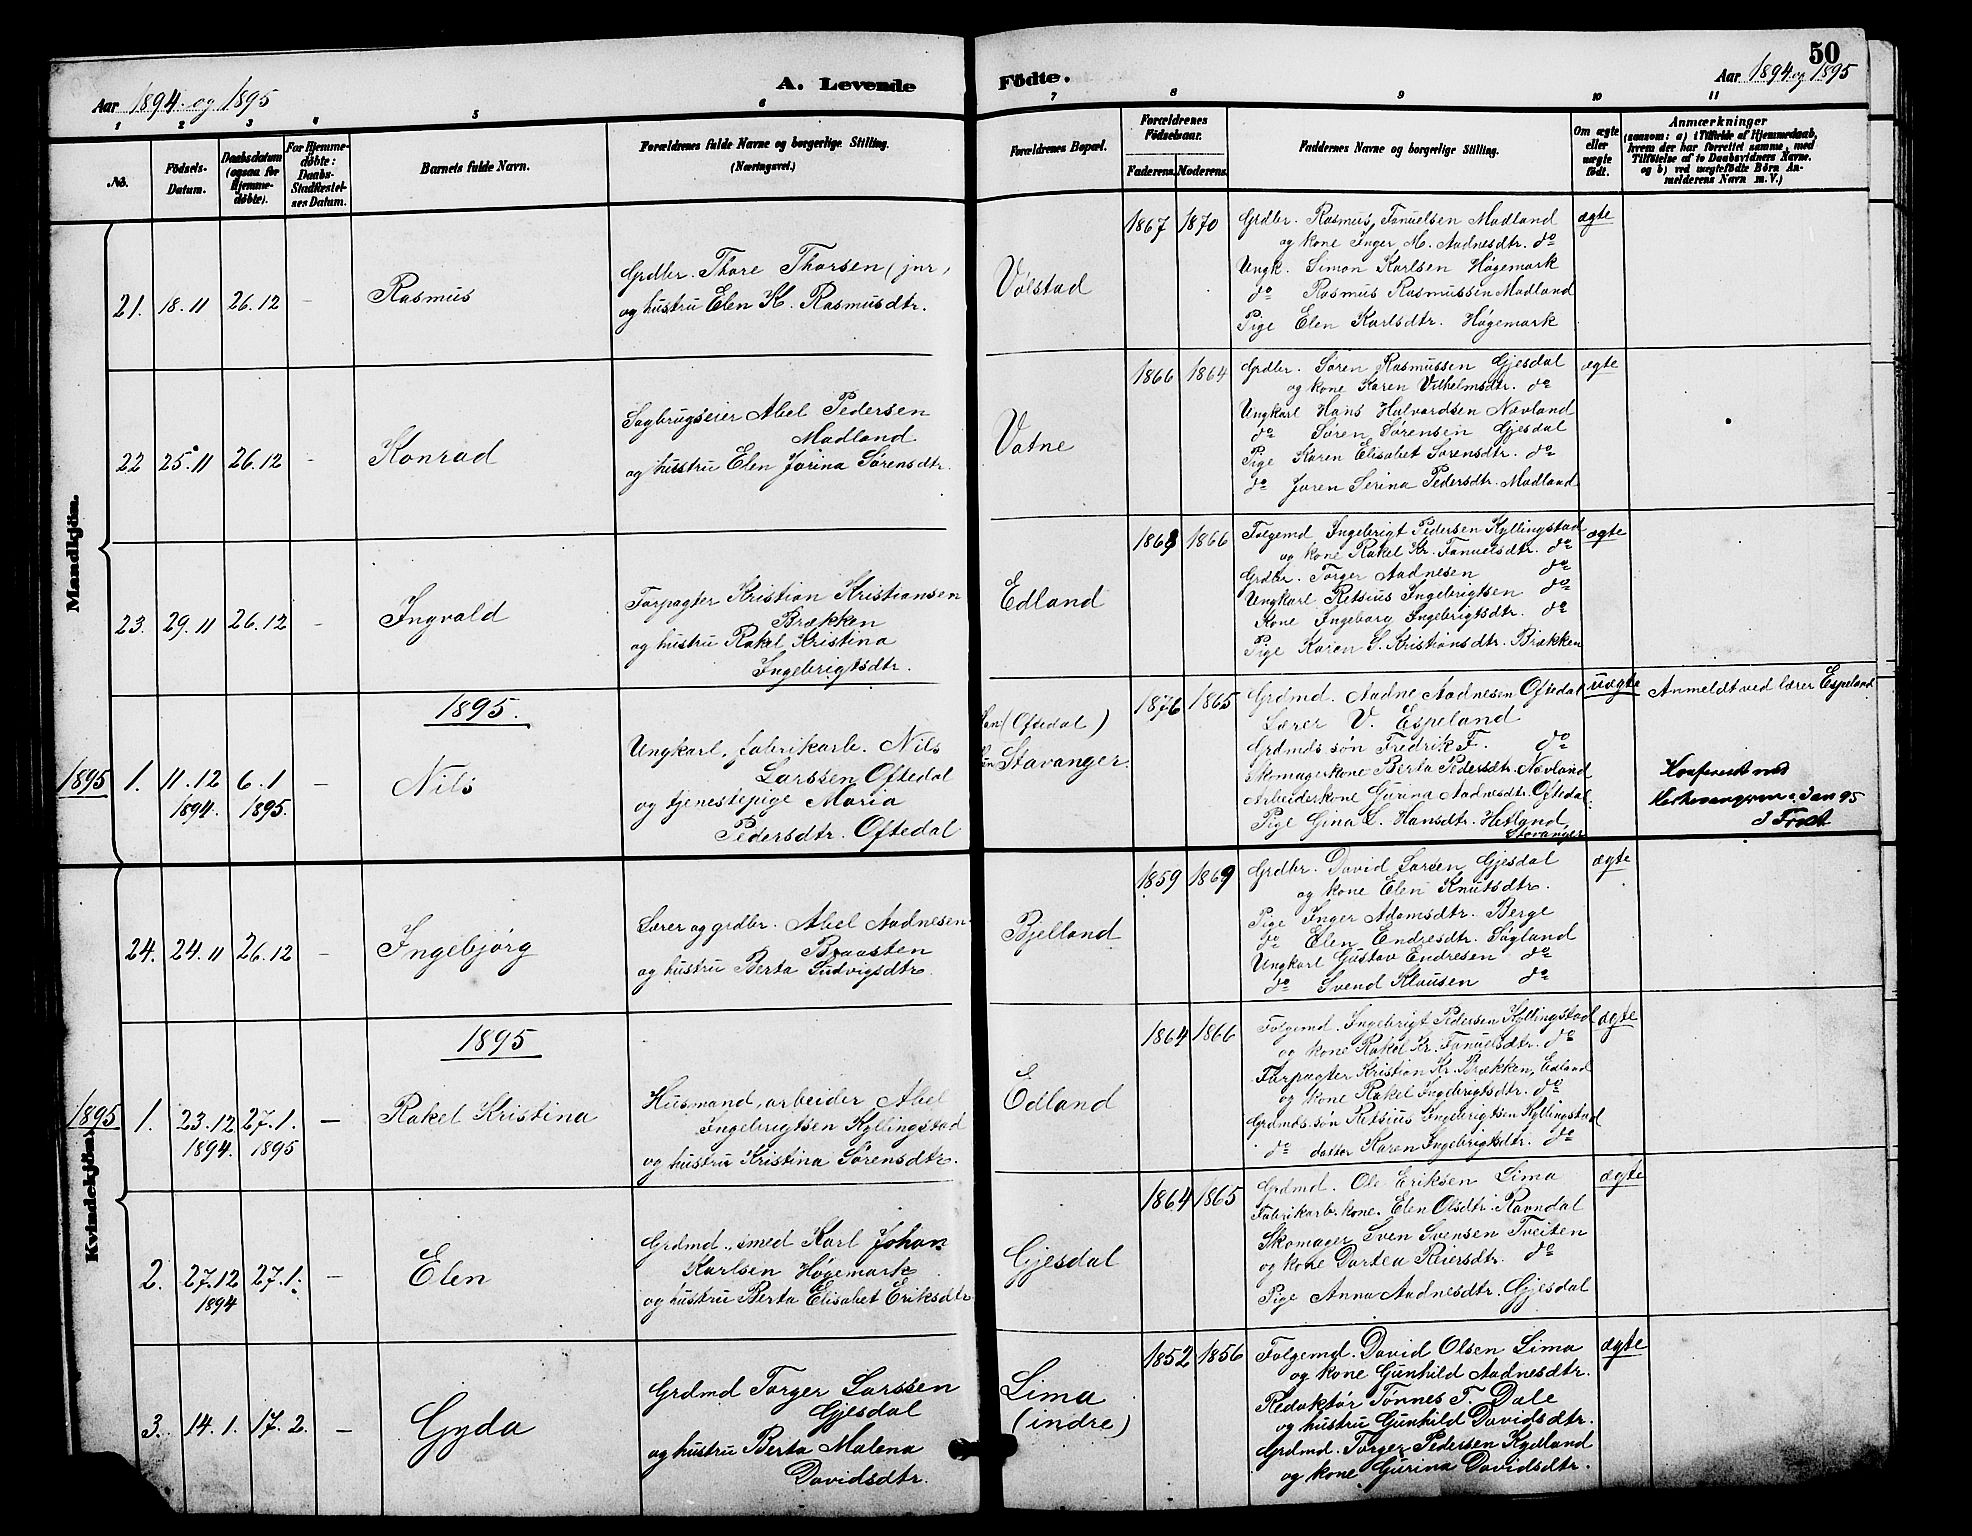 50
A. Levende Fødte.
Aar 1894 og 1895
Aar 1894 og 1895
1 2 3 4 5 6 7 8 9 10 11
No.
Fødsels-Datum.
Daabsdatum (ogsaa for Hjemme-døbte).
For Hjemme-døbte: Daabs-Stadfæstel-ses Datum.
Barnets fulde Navn.
Forældrenes fulde Navne og borgerlige Stilling. (Næringsvei.)
Forældrenes Bopæl.
Forældrenes Fødselsaar.
Faderens. Moderens.
Faddernes Navne og borgerlige Stilling.
Om ægte eller uægte født.
Anmærkninger
(saasom: a) i Tilfælde af Hjemmedaab, hvem der har forrettet samme, med Tilføielse af to Daabsvidners Navne. og b) ved uægtefødte Børn An-melderens Navn m. V.)
Mandkjøn.
21. 18.11 26.12 – Rasmus
Grdbr. Thore Thorsen (jnr)
og hustru Elen K. Rasmusdtr.
Vølstad
1867 1870
Grdbr. Rasmus Tanuelsen Madland
og kone Inger M. Aadnesdtr. do
Ungk. Simon Karlsen Høgemark
do Rasmus Rasmussen Madland
Pige Elen Karlsdtr. Høgemark
ægte
22 25.11 26.12 – Konrad
Sagbrugseier Abel Pedersen
Madland
og hustru Elen Jorina Sørensdtr.
Vatne
1866 1864
Grdbr. Søren Rasmussen Gjesdal
og kone Karen Vilhelmsdtr. do
Ungkarl Hans Halvardsen Nævland
do Søren Sørensen Gjesdal
Pige Karen Elisabet Sørensdtr. do
do Joren Serina Pedersdtr. Madland
ægte
23. 29.11 26.12 – Ingvald
Forpagter Kristian Kristiansen
Brækken
og hustru Rakel Kristina
Ingebrigtsdtr.
Edland
1868 1866
Folgemd Ingebrigt Pedersen Kyllingstad
og kone Rakel Kr. Tanuelsdtr. do
Grdbr. Torger Aadnesen do
Ungkarl Retsius Ingebrigtsen do
Kone Ingeborg Ingebrigtsdtr. do
Pige Karen S. Kristiansdtr. Brækken
ægte
1895.
1895 1. 11.12 1894. 6.1 1895. – Nils
Ungkarl, fabrikarb. Nils
Larssen Oftedal
og tjenestepige Maria
Pedersdtr. Oftedal
(Oftedal)
Stavanger.
1876 1865
Grdmd. Aadne Aadnesen Oftedal
Lærer V. Espeland
Grdmds søn Fredrik F. do
Skomagerkone Berta Pedersdtr. Nævland
Arbeiderkone Gurina Aadnesdtr. Oftedal
Pige Gina L. Hansdtr. Hetland,
Stavanger
uægte
Anmeldt ved lærer Espeland
Konfereret med
Jan 95
Kvindekjøn.
24. 24.11 26.12 – Ingebjørg
Lærer og grdbr. Abel Aadnesen
Braasten
og hustru Berta Ludvigsdtr.
Bjelland
1859 1869
Grdbr. David Larsen Gjesdal
og kone Elen Knutsdtr.
Pige Inger Adamsdtr. Berge
do Elen Endresdtr. Søyland
Ungkarl Gustav Endresen do
do Svend Klausen do
ægte
1895
1895 1. 23.12 1894. 27.1. 1895 – Rakel Kristina
Husmand, arbeider Abel
Ingebrigtsen Kyllingstad
og hustru Kristina Sørensdtr.
Edland
1864 1866
Folgemd. Ingebrigt Pedersen Kyllingstad
og kone Rakel Kr. Tanuelsdtr. do
Forpagter Kristian Kr. Brækken, Edland
og kone Rakel Ingebrigtsdtr. do
Grdmds.søn Retsius Ingebrigtsen Kyllingstad
do datter Karen Ingebrigtsdtr. do
ægte
2. 27.12 1894 27.1. – Elen
Grdmd., smed Karl Johan
Karlsen Høgemark
og hustru Berta Elisabet Eriksdtr.
Gjesdal
1864 1865
Grdmd. Ole Eriksen Lima
Fabrikarb.kone. Elen Olsdtr. Ravndal
Skomager Sven Svensen Tveiten
og kone Dortea Reiersdtr. do
Pige Anna Aadnesdtr. Gjesdal
ægte
3. 14.1. 17.2. – Gyda
Grdmd Torger Larssen
Gjesdal
og hustru Berta Malena
Davidsdtr.
Lima
(indre)
1852 1856
Folgemd. David Olsen Lima
og kone Gunhild Aadnesdtr.
Redaktør Tønnes T. Dale
og hustru Gunhild Davidsdtr.
Grdmd. Torger Pedersen Kydland
og kone Gurina Davidsdtr.
ægte